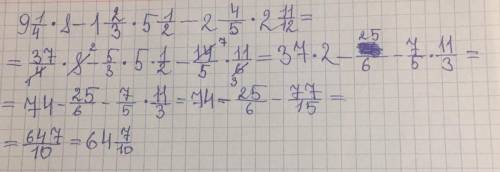 9 1/4 · 8 - 1 2/3 · 5 1/2 - 2 4/5 · 2 11/12 =
= 37/4 · 8² - 5/3 · 5 · 1/2 - 14⁷/5 · 11/6₃ = 37 · 2 - 25/6 - 7/5 · 11/3 =
= 74 - 25/6 - 7/5 · 11/3 = 74 - 25/6 - 77/15 =
= 647/10 = 64 7/10